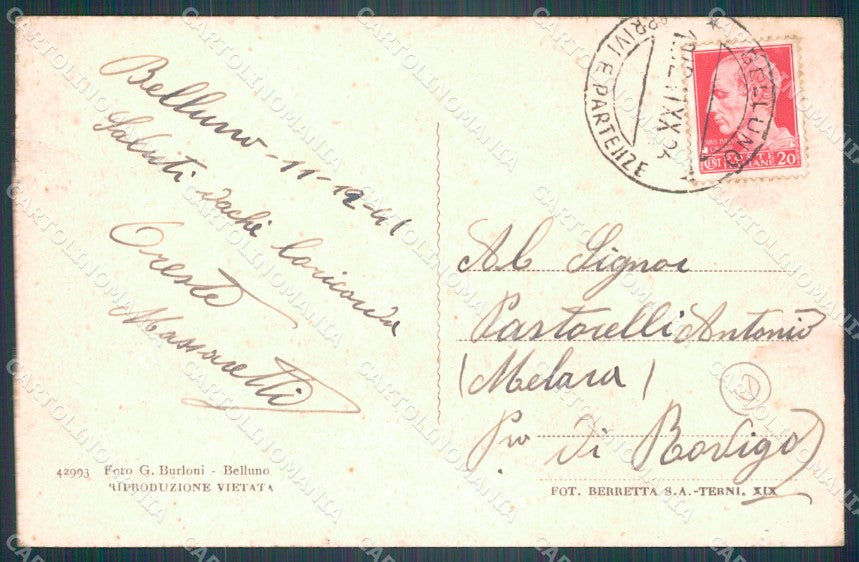 Belluno - 11-12-41
Saluti
Oreste
Massaretti
42993 Foto G. Burloni - Belluno
RIPRODUZIONE VIETATA
BELLUNO
ARRIVI E PARTENZE
POSTE ITALIANE
CENT 20
Al Signor
Pastorelli Antonio
(Melara)
Prv di Rovigo
FOT. BERRETTA S.A.-TERNI. XIX
CARTOLINOMANIA